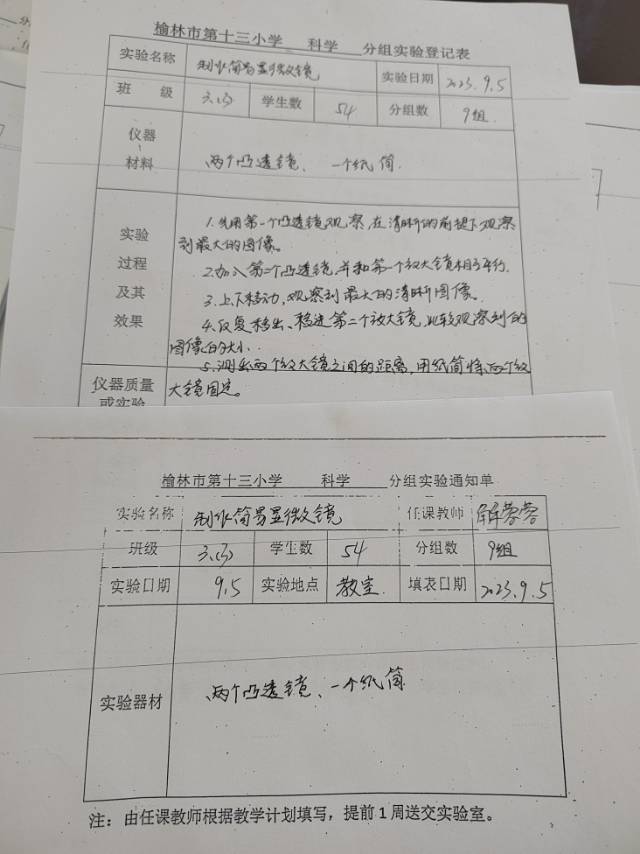 榆林市第十三小学 科学 分组实验登记表
实验名称 制作简易显微镜 实验日期 2023.9.5
班 级 三(3) 学生数 54 分组数 9组
仪器
材料 两个凸透镜、一个纸筒
实验
过程
及其
效果
1.先用第一个凸透镜观察,在清晰的前提下观察
到最大的图像。
2.加入第二个凸透镜,并和第一个放大镜相互平行.
3.上下移动,观察到最大的清晰图像。
4.反复移出、移进第二个放大镜,比较观察到的
图像的大小.
5.测出两个放大镜之间的距离,用纸筒将两个放
大镜固定。
仪器质量
或实验
榆林市第十三小学 科学 分组实验通知单
实验名称 制作简易显微镜 任课教师 蓉蓉
班级 三(3) 学生数 54 分组数 9组
实验日期 9.5 实验地点 教室. 填表日期 2023.9.5
实验器材 两个凸透镜、一个纸筒
注:由任课教师根据教学计划填写,提前1周送交实验室。